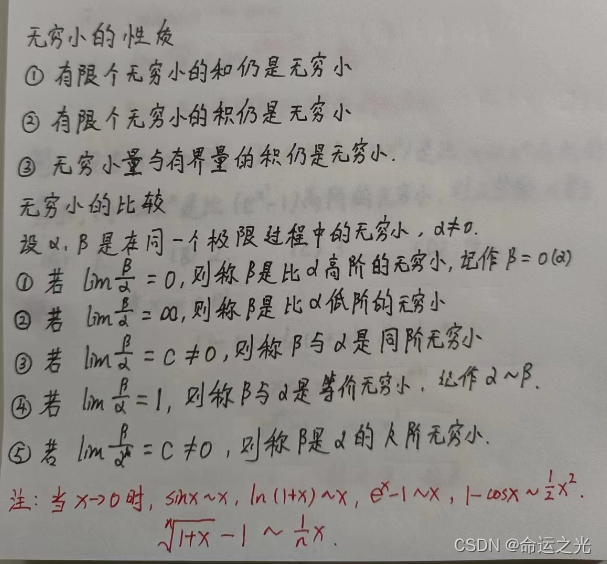 无穷小的性质
① 有限个无穷小的和仍是无穷小
② 有限个无穷小的积仍是无穷小
③ 无穷小量与有界量的积仍是无穷小.
无穷小的比较
设 α, β 是在同一个极限过程中的无穷小, α≠0.
① 若 lim β/α = 0, 则称 β 是比 α 高阶的无穷小, 记作 β = 0(α)
② 若 lim β/α = ∞, 则称 β 是比 α 低阶的无穷小
③ 若 lim β/α = C ≠ 0, 则称 β 与 α 是同阶无穷小
④ 若 lim β/α = 1, 则称 β 与 α 是等价无穷小, 记作 α ~ β.
⑤ 若 lim β/αᵏ = C ≠ 0, 则称 β 是 α 的 k 阶无穷小.
注: 当 x→0 时, sinx ~ x, ln(1+x) ~ x, eˣ-1 ~ x, 1-cosx ~ ½x².
ⁿ√(1+x) - 1 ~ 1/n x.
CSDN @命运之光